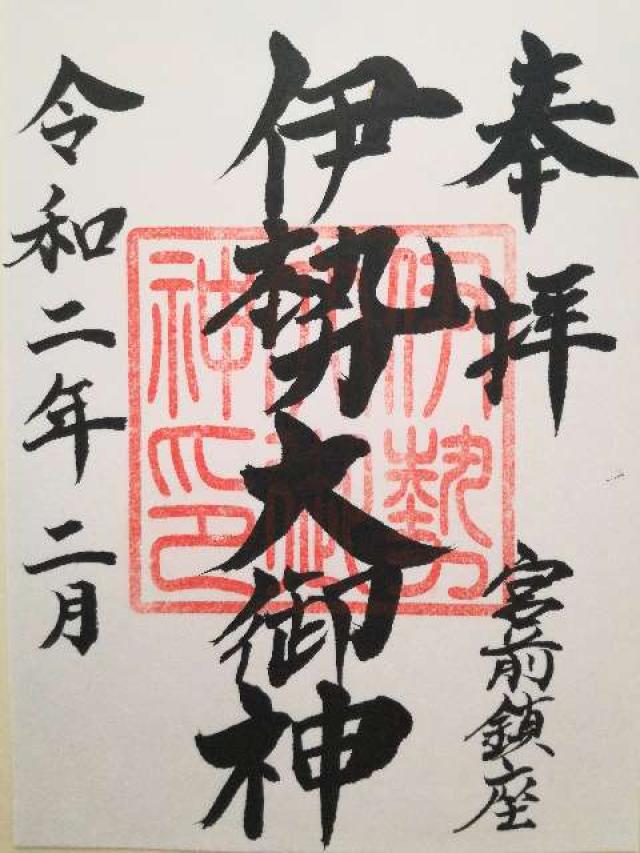 奉拝
宮前鎮座
伊勢大御神
伊勢大御神印
令和二年二月